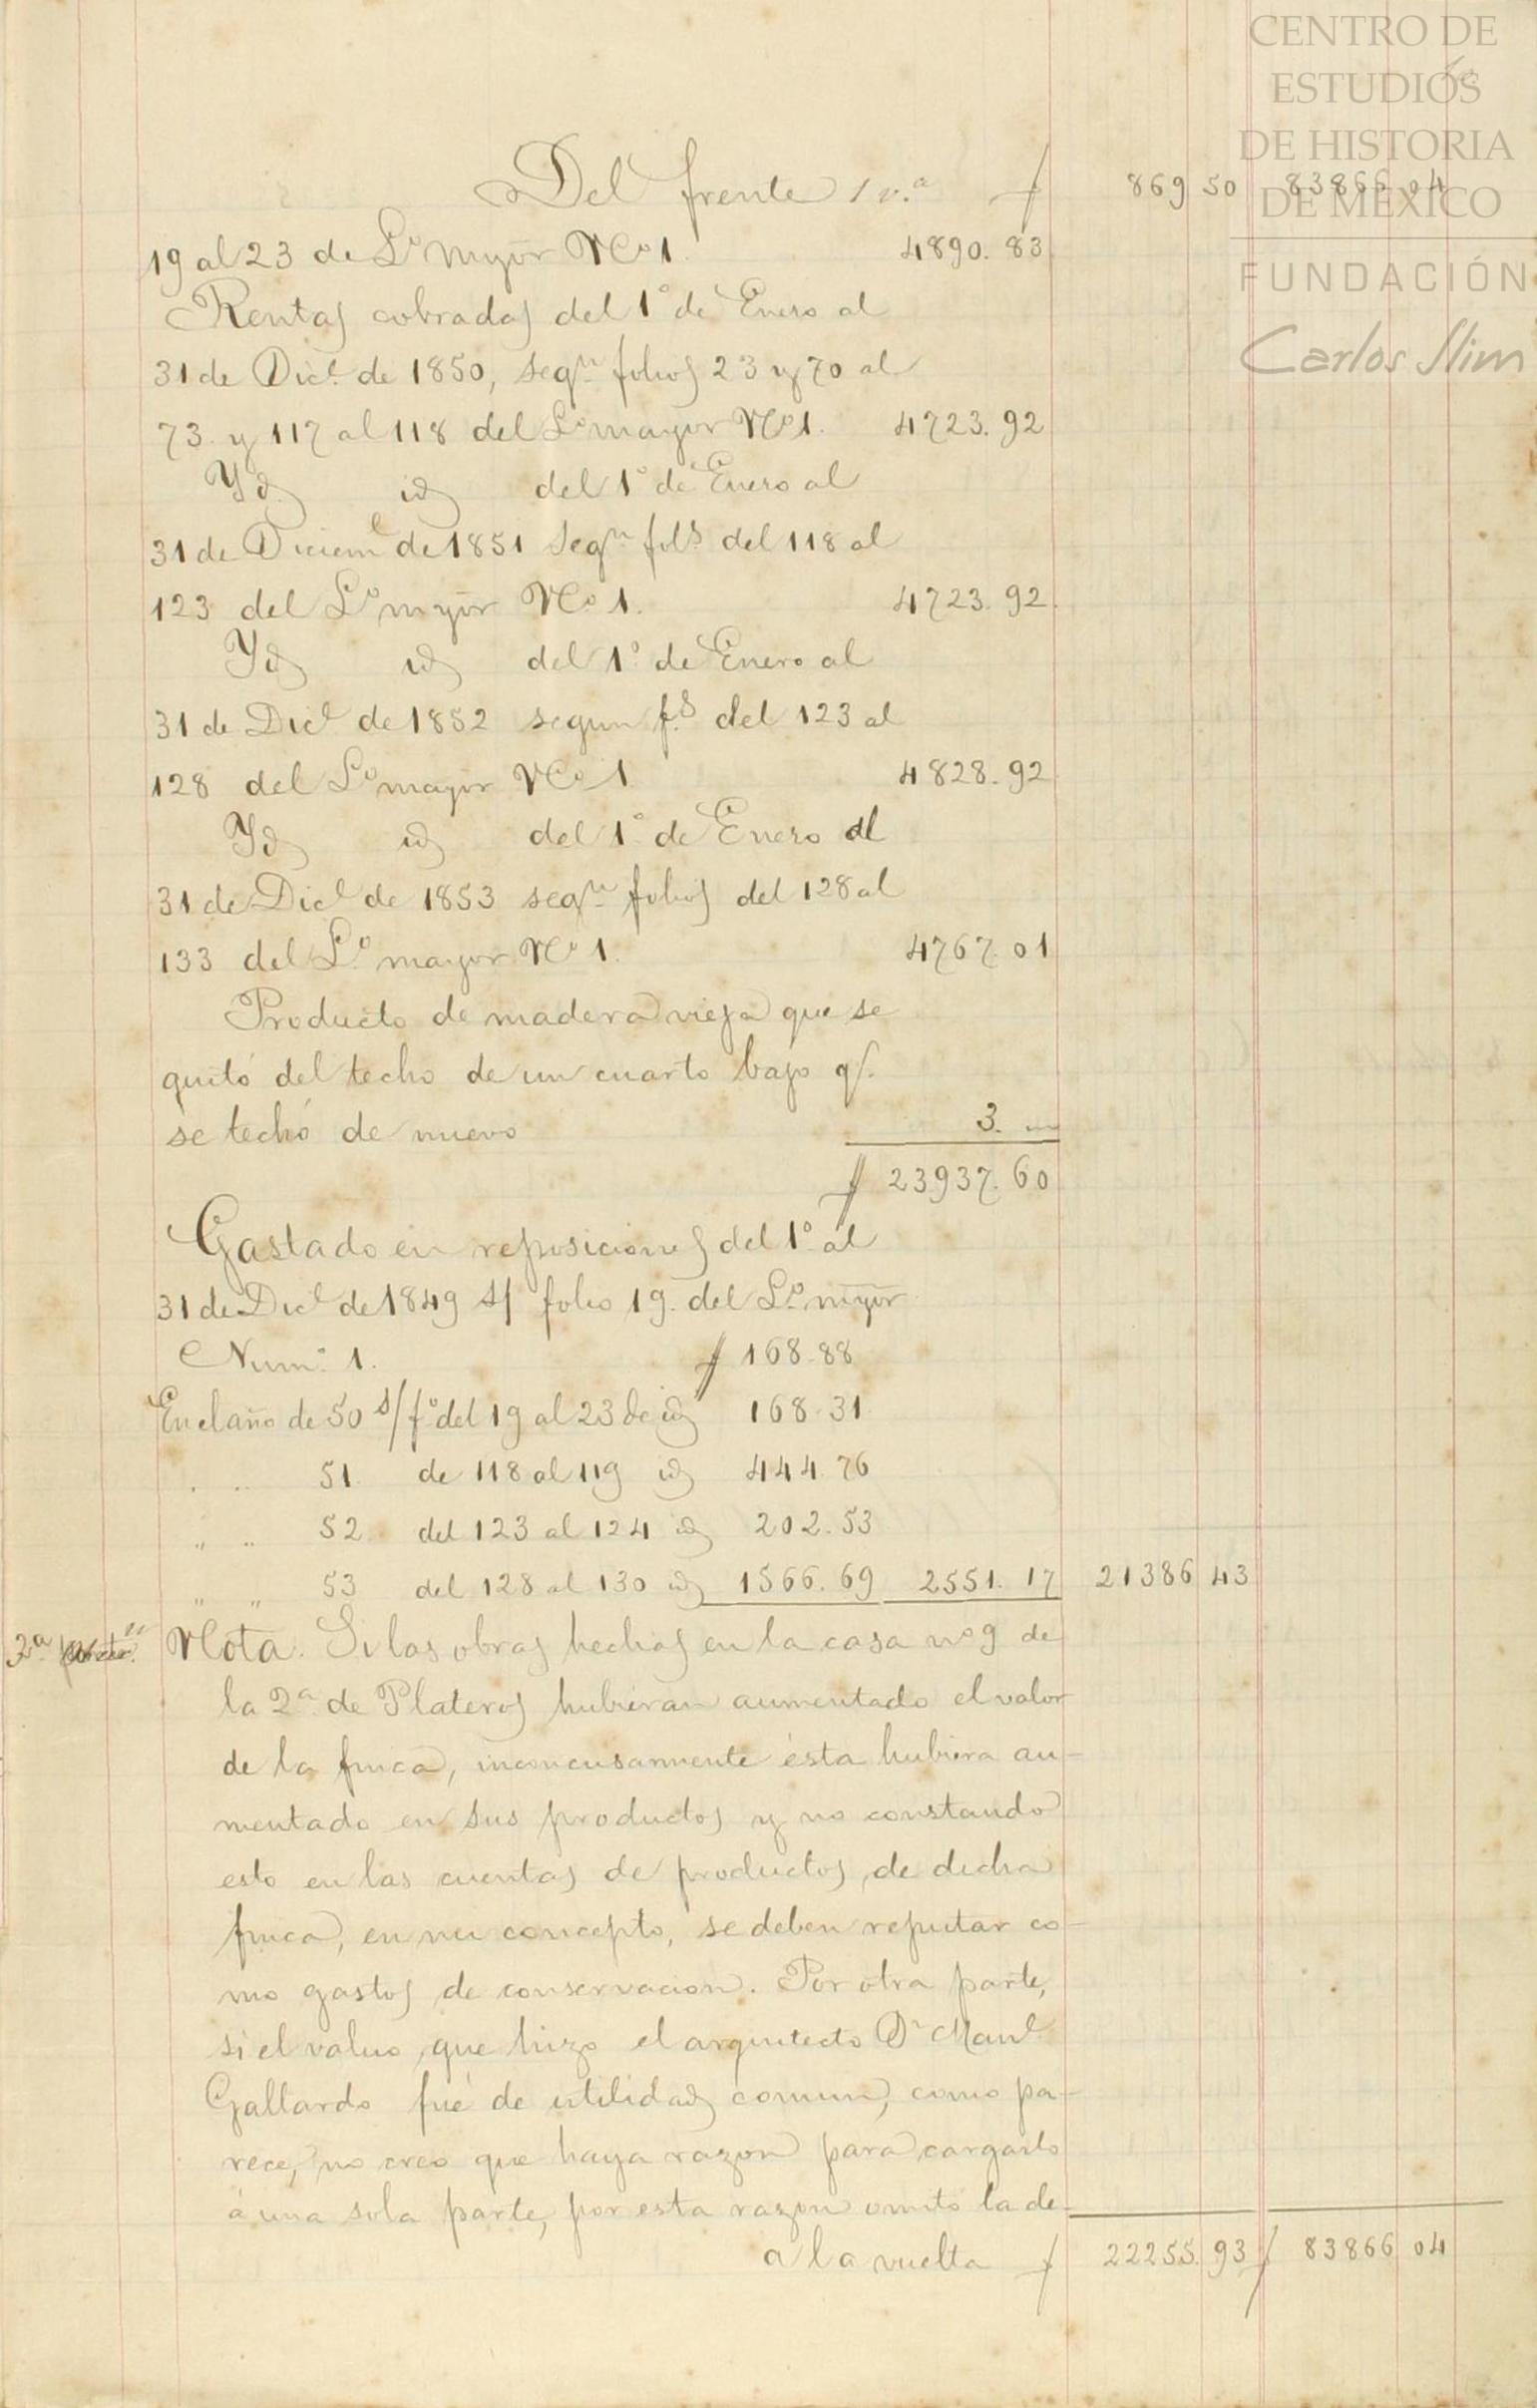 CENTRO DE
ESTUDIOS
DE HISTORIA
DE MÉXICO
FUNDACIÓN
Carlos Slim
Del frente 1 v.ª $ 869 50 83866 04
19 al 23 de L.º myor N.º 1. 4890. 83
Rentas cobradas del 1.º de Enero al
31 de Dic.e de 1850, seg.n folios 23 y 70 al
73 y 117 al 118 del L.º mayor N.º 1. 4723. 92
Yd id del 1.º de Enero al
31 de Diciem.e de 1851 seg.n fol.s del 118 al
123 del L.º myor N.º 1. 4723. 92
Yd id del 1.º de Enero al
31 de Dic.e de 1852 segun f.s del 123 al
128 del L.º mayor N.º 1. 4828. 92
Yd id del 1.º de Enero al
31 de Dic.e de 1853 seg.n folios del 128 al
133 del L.º mayor N.º 1. 4767. 01
Producto de madera vieja que se
quitó del techo de un cuarto bajo q/.
se techó de nuevo 3. "
$ 23937. 60
Gastado en reposiciones del 1.º al
31 de Dic.e de 1849 s/ folio 19. del L.º myor
Num.º 1. $ 168. 88
En el año de 50 s/ f.º del 19 al 23 de id 168. 31
. .. 51. de 118 al 119 id 444. 76
" " 52. del 123 al 124 id 202. 53
" " 53 del 128 al 130 id 1566. 69 2551. 17 21386 43
3.ª Nota. Si las obras hechas en la casa nº 9 de
la 2.ª de Plateros hubieran aumentado el valor
de la finca, inconcusamente ésta hubiera au-
mentado en sus productos y no constando
esto en las cuentas de productos, de dicha
finca, en mi concepto, se deben reputar co-
mo gastos de conservacion. Por otra parte,
si el valuo, que hizo el arquitecto D.n Man.l
Gallardo fué de utilidad comun, como pa-
rece, no creo que haya razon para cargarlo
á una sola parte, por esta razon omito la de-
a la vuelta $ 22255. 93 $ 83866 04